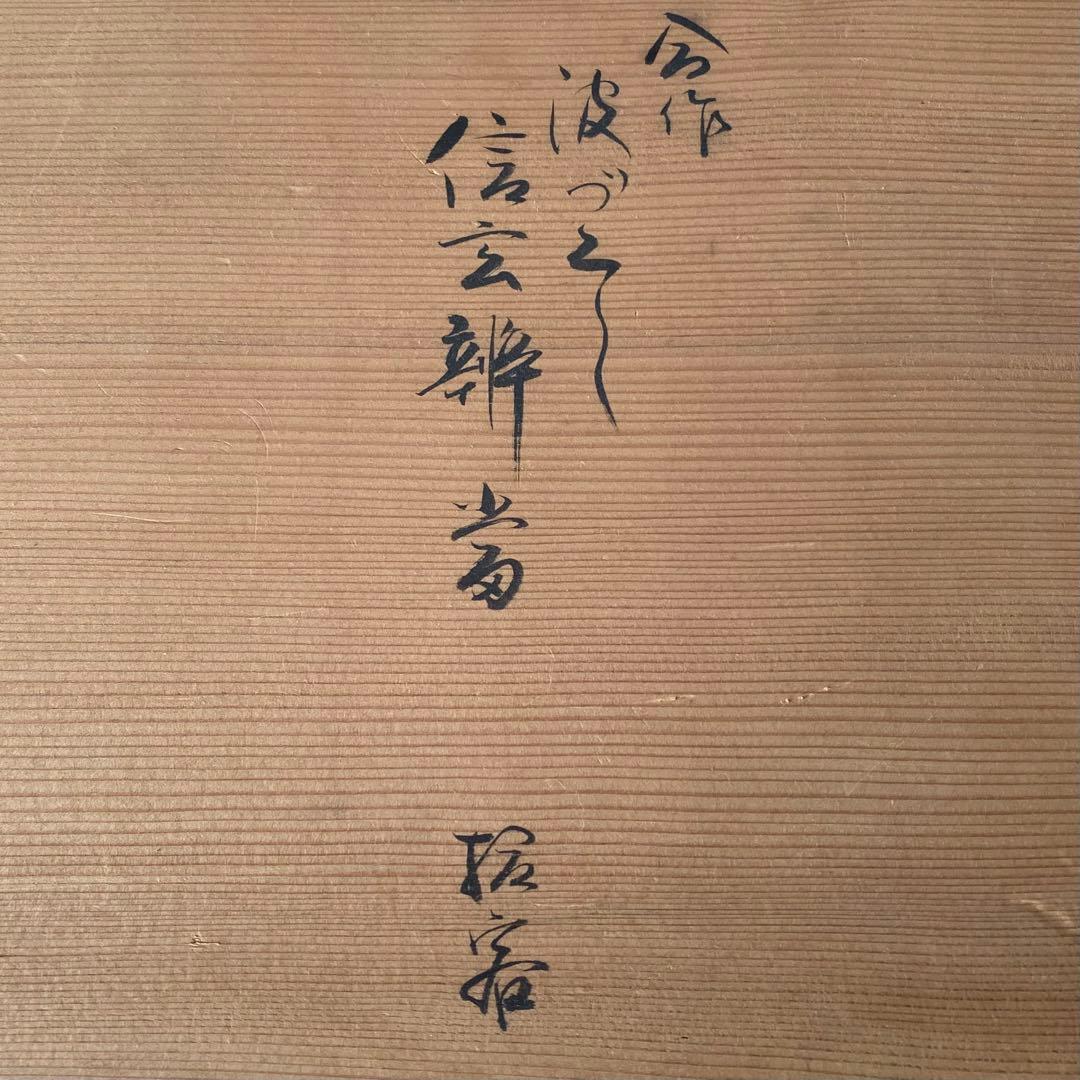 合作
波づくし
信玄辨當
拾客